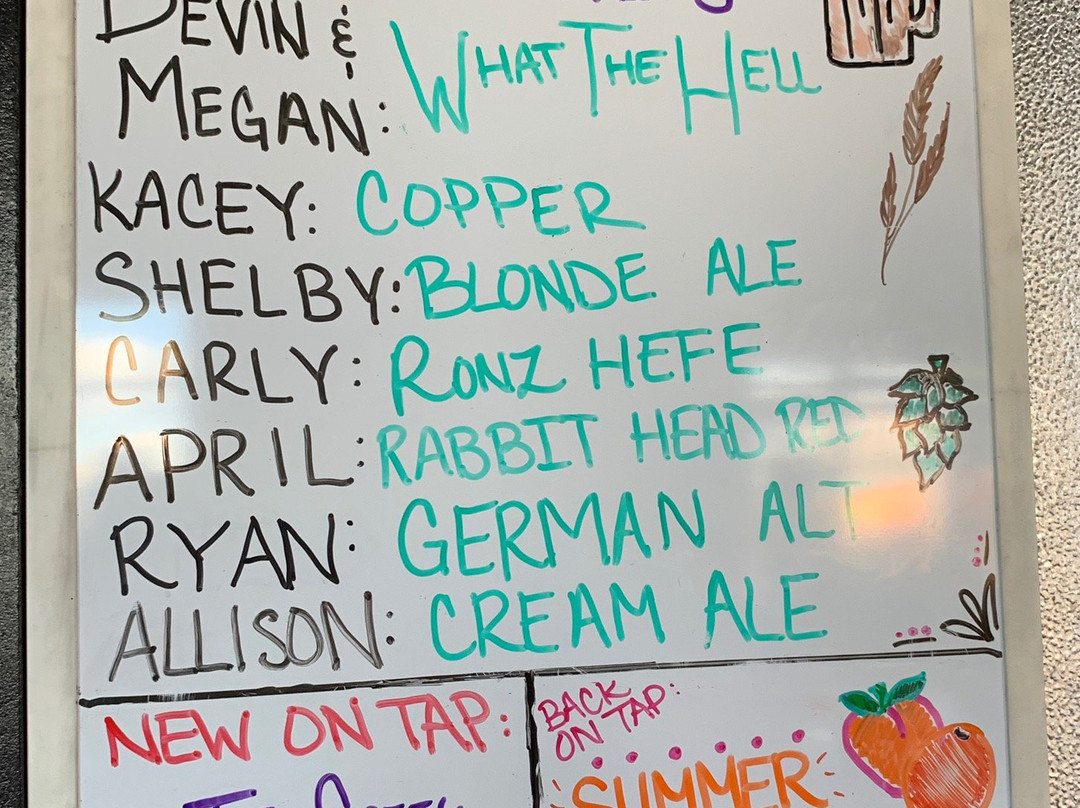 DEVIN &
MEGAN: WHAT THE HELL
KACEY: COPPER
SHELBY: BLONDE ALE
CARLY: RONZ HEFE
APRIL: RABBIT HEAD RED
RYAN: GERMAN ALT
ALLISON: CREAM ALE
NEW ON TAP:
BACK
ON TAP:
SUMMER